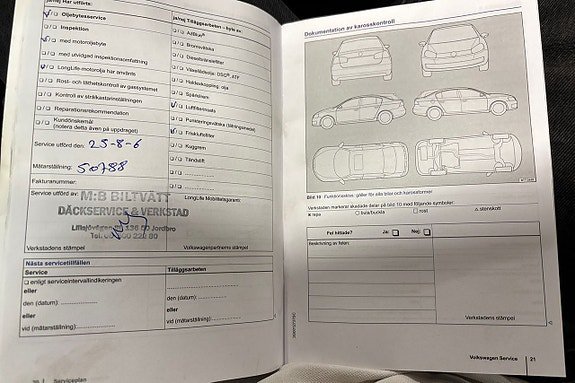 ja/nej Har utförts:
Oljebytesservice
Inspektion
med motoroljebyte
med utvidgad inspektionsomfattning
LongLife-motorolja har använts
Rost- och täthetskontroll av gassystemet
Kontroll av strålkastarinställningen
Reparationsrekommendation
Kundönskemål
(notera detta även på uppdraget)
Service utförd den: 25-8-6
Mätarställning: 50788
Fakturanummer:
Service utförd av:
LongLife Mobilitetsgaranti:
M:B BILTVÄTT
DÄCKSERVICE & VERKSTAD
136 50 Jordbro
Verkstadens stämpel
Volkswagenpartnerns stämpel
Nästa servicetillfällen
Service
enligt serviceintervallindikeringen
eller
den (datum):
eller
vid (mätarställning):
Tilläggsarbeten
den (datum):
eller
vid (mätarställning):
Serviceplan
ja/nej Tilläggsarbeten – byte av:
AdBlue®
Bromsvätska
Dieselbränslefilter
Växellådsolja: DSG®, ATF
Haldexkoppling: olja
Spårdrem
Luftfilterinsats
Punkteringsvätska (tätningsmedel)
Friskluftsfilter
Kuggrem
Tändstift
Dokumentation av karosskontroll
Bild 10 Funktionsskiss: gäller för alla bilar och karossformer
Verkstaden markerar skadade delar på bild 10 med följande symboler:
x repa
o bula/buckla
□ rost
△ stenskott
Fel hittade? Ja: Nej:
Beskrivning av felen:
Verkstadens stämpel
Volkswagen Service 21